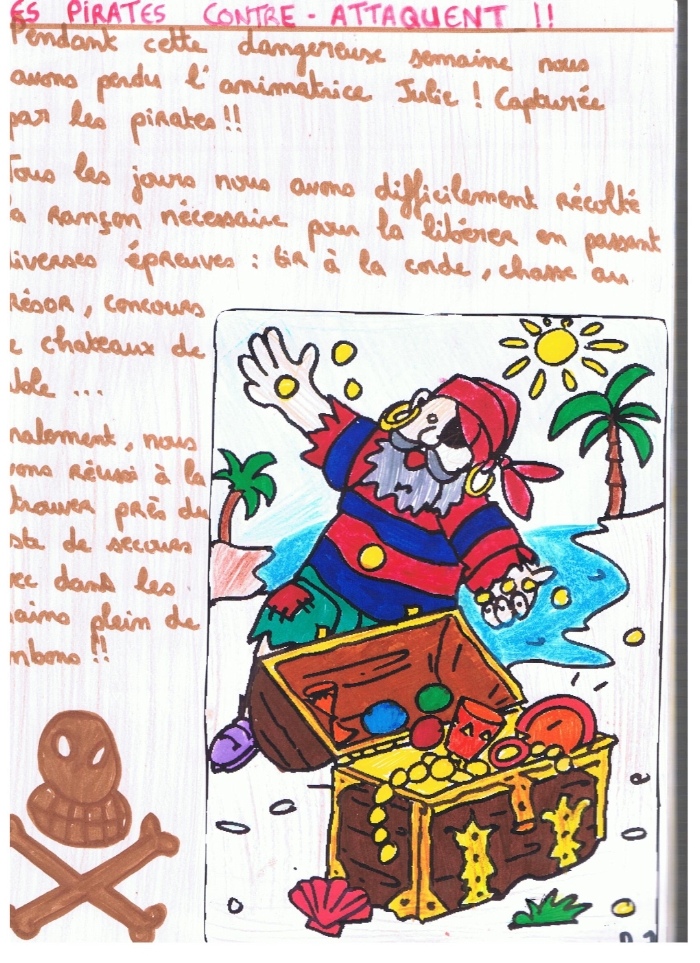 ES PIRATES CONTRE-ATTAQUENT !!
Pendant cette dangereuse semaine nous
avons perdu l'animatrice Julie ! Capturée
par les pirates !!
Tous les jours nous avons difficilement récolté
a Rançon nécessaire pour la libérer en passant
diverses épreuves : tir à la corde, chasse au
résor, concours
e chateaux de
able ...
nalement, nous
vons réussi à la
trouver près du
ste de secours
vec dans les
ains plein de
nbons !!